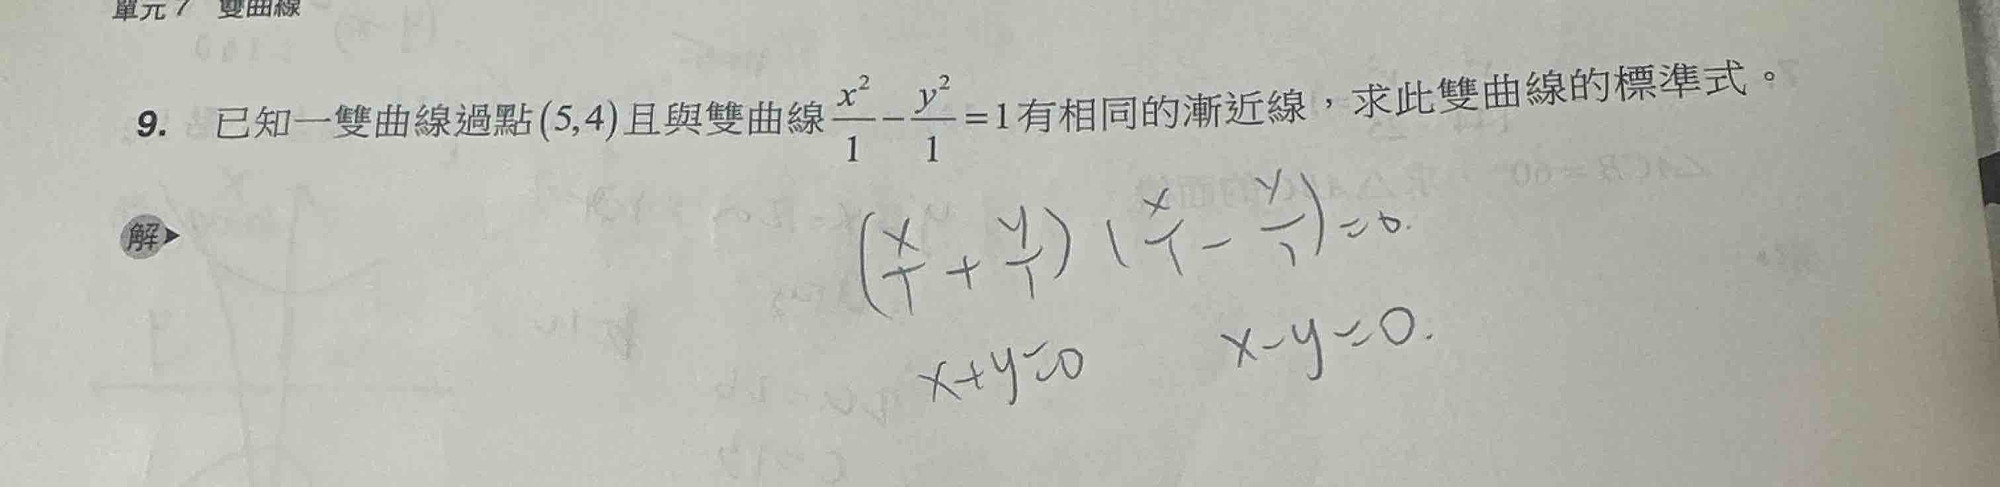 單元 7 雙曲線
9. 已知一雙曲線過點(5,4)且與雙曲線x²/1 - y²/1 = 1有相同的漸近線，求此雙曲線的標準式。
解
(x/1 + y/1)(x/1 - y/1) = 0.
x+y=0 x-y=0.